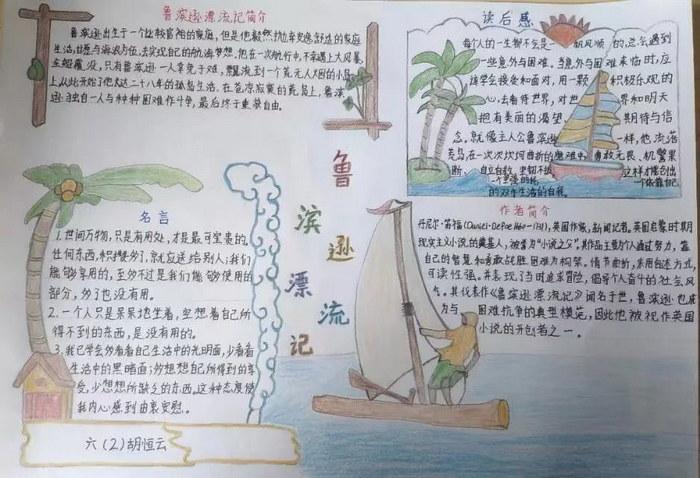 鲁滨逊漂流记简介
鲁滨逊出生于一个比较富裕的家庭，但是他毅然抛弃安逸舒适的家庭
生活，甘愿与海浪为伍，去实现自己的航海梦想。他在一次航行中，不幸遇上大风暴，
全船覆没，只有鲁滨逊一人幸免于难，飘流到一个荒无人烟的小岛
上，从此开始了他长达二十八年的孤岛生活。在荒凉寂寞的荒岛上，鲁滨
逊独自一人与种种困难作斗争，最后终于重获自由。
读后感
每个人的一生都不会是一帆风顺的，总会遇到
一些意外与困难。当意外与困难来临时，应
该学会接受和面对，用一颗积极乐观的
心，去看待世界，对世界和明天
把有美丽的渴望期待与信
念，就像主人公鲁滨逊一样，他流落
荒岛，在一次次坎坷曲折的磨难中勇敢无畏、机警果
断、自立自救，坚韧不拔，这样才能创出
的双重生活的自我。
鲁滨逊漂流记
名言
1.世间万物，只是有用处，才是最可宝贵的。
任何东西，积攒多了，就应送给别人；我们
能够享用的，至多不过是我们能够使用的
部分，多了也没有用。
2.一个人只是呆呆地坐着，空想着自己所
得不到的东西，是没有用的。
3.我已学会多看看自己生活中的光明面，少看看
生活中的黑暗面；多想想自己所得到的享
受，少想想所缺乏的东西。这种态度使
我内心感到由衷安慰。
作者简介
丹尼尔·笛福(Daniel·Defoe 1660-1731)，英国作家，新闻记者。英国启蒙时期
现实主义小说的奠基人，被誉为"小说之父"。其作品主要为个人通过努力，靠
自己的智慧和勇敢战胜困难为构架。情节曲折，采用自述方式，
可读性强。并表现了当时追求冒险，倡导个人奋斗的社会风
气。其代表作《鲁滨逊漂流记》闻名于世，鲁滨逊也成
为与困难抗争的典型模范，因此他被视作英国
小说的开创者之一。
六(2)胡恒云